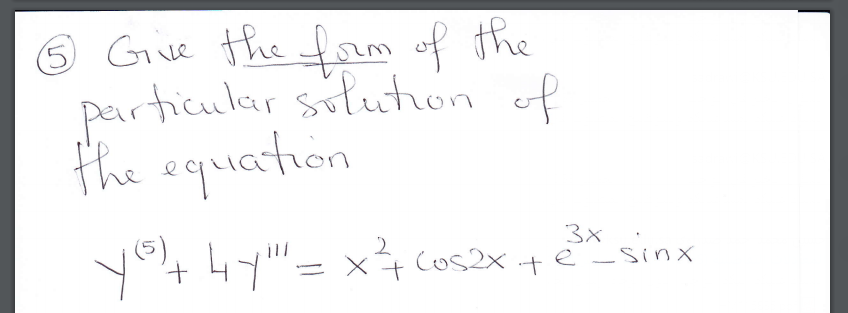 ⑤ Give the form of the
particular solution of
the equation
y⁽⁵⁾ + 4y''' = x² + cos2x + e³ˣ - sinx